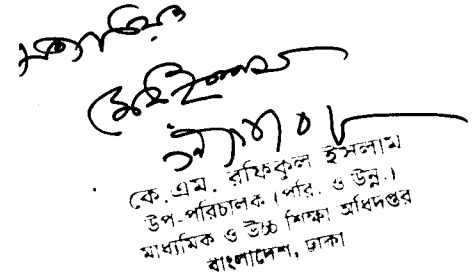 সত্যায়িত
কে.এম. রফিকুল ইসলাম
উপ-পরিচালক (পরি. ও উন্ন.)
মাধ্যমিক ও উচ্চ শিক্ষা অধিদপ্তর
বাংলাদেশ, ঢাকা